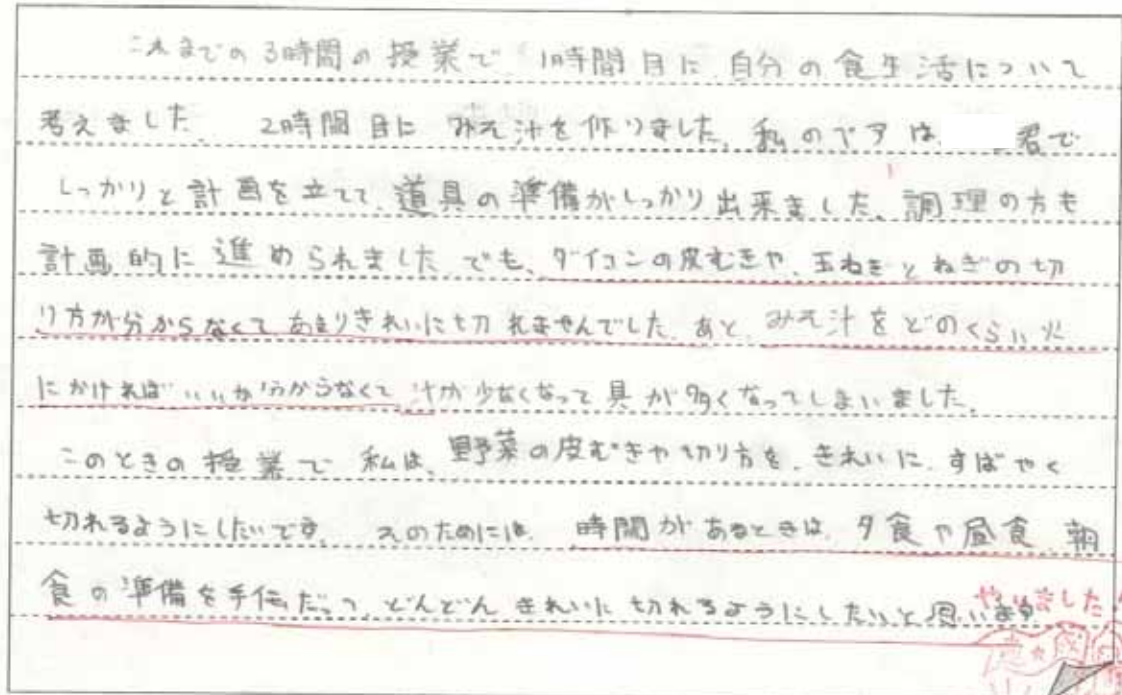 これまでの3時間の授業で 1時間目に 自分の食生活について
考えました。 2時間目に みそ汁を作りました。私のペアは 君で
しっかりと計画を立てて、道具の準備がしっかり出来ました。調理の方も
計画的に進められました でも、ダイコンの皮むきや、玉ねぎとねぎの切
り方が分からなくて あまりきれいに切れませんでした。あと、みそ汁をどのくらい火
にかければいいか分からなくて 汁が少なくなって具が多くなってしまいました。
このときの授業で 私は、野菜の皮むきや切り方を、きれいに、すばやく
切れるようにしたいです。 そのためには、 時間があるときは、夕食や昼食、朝
食の準備を手伝だって、どんどん きれいに切れるようにしたいと思います